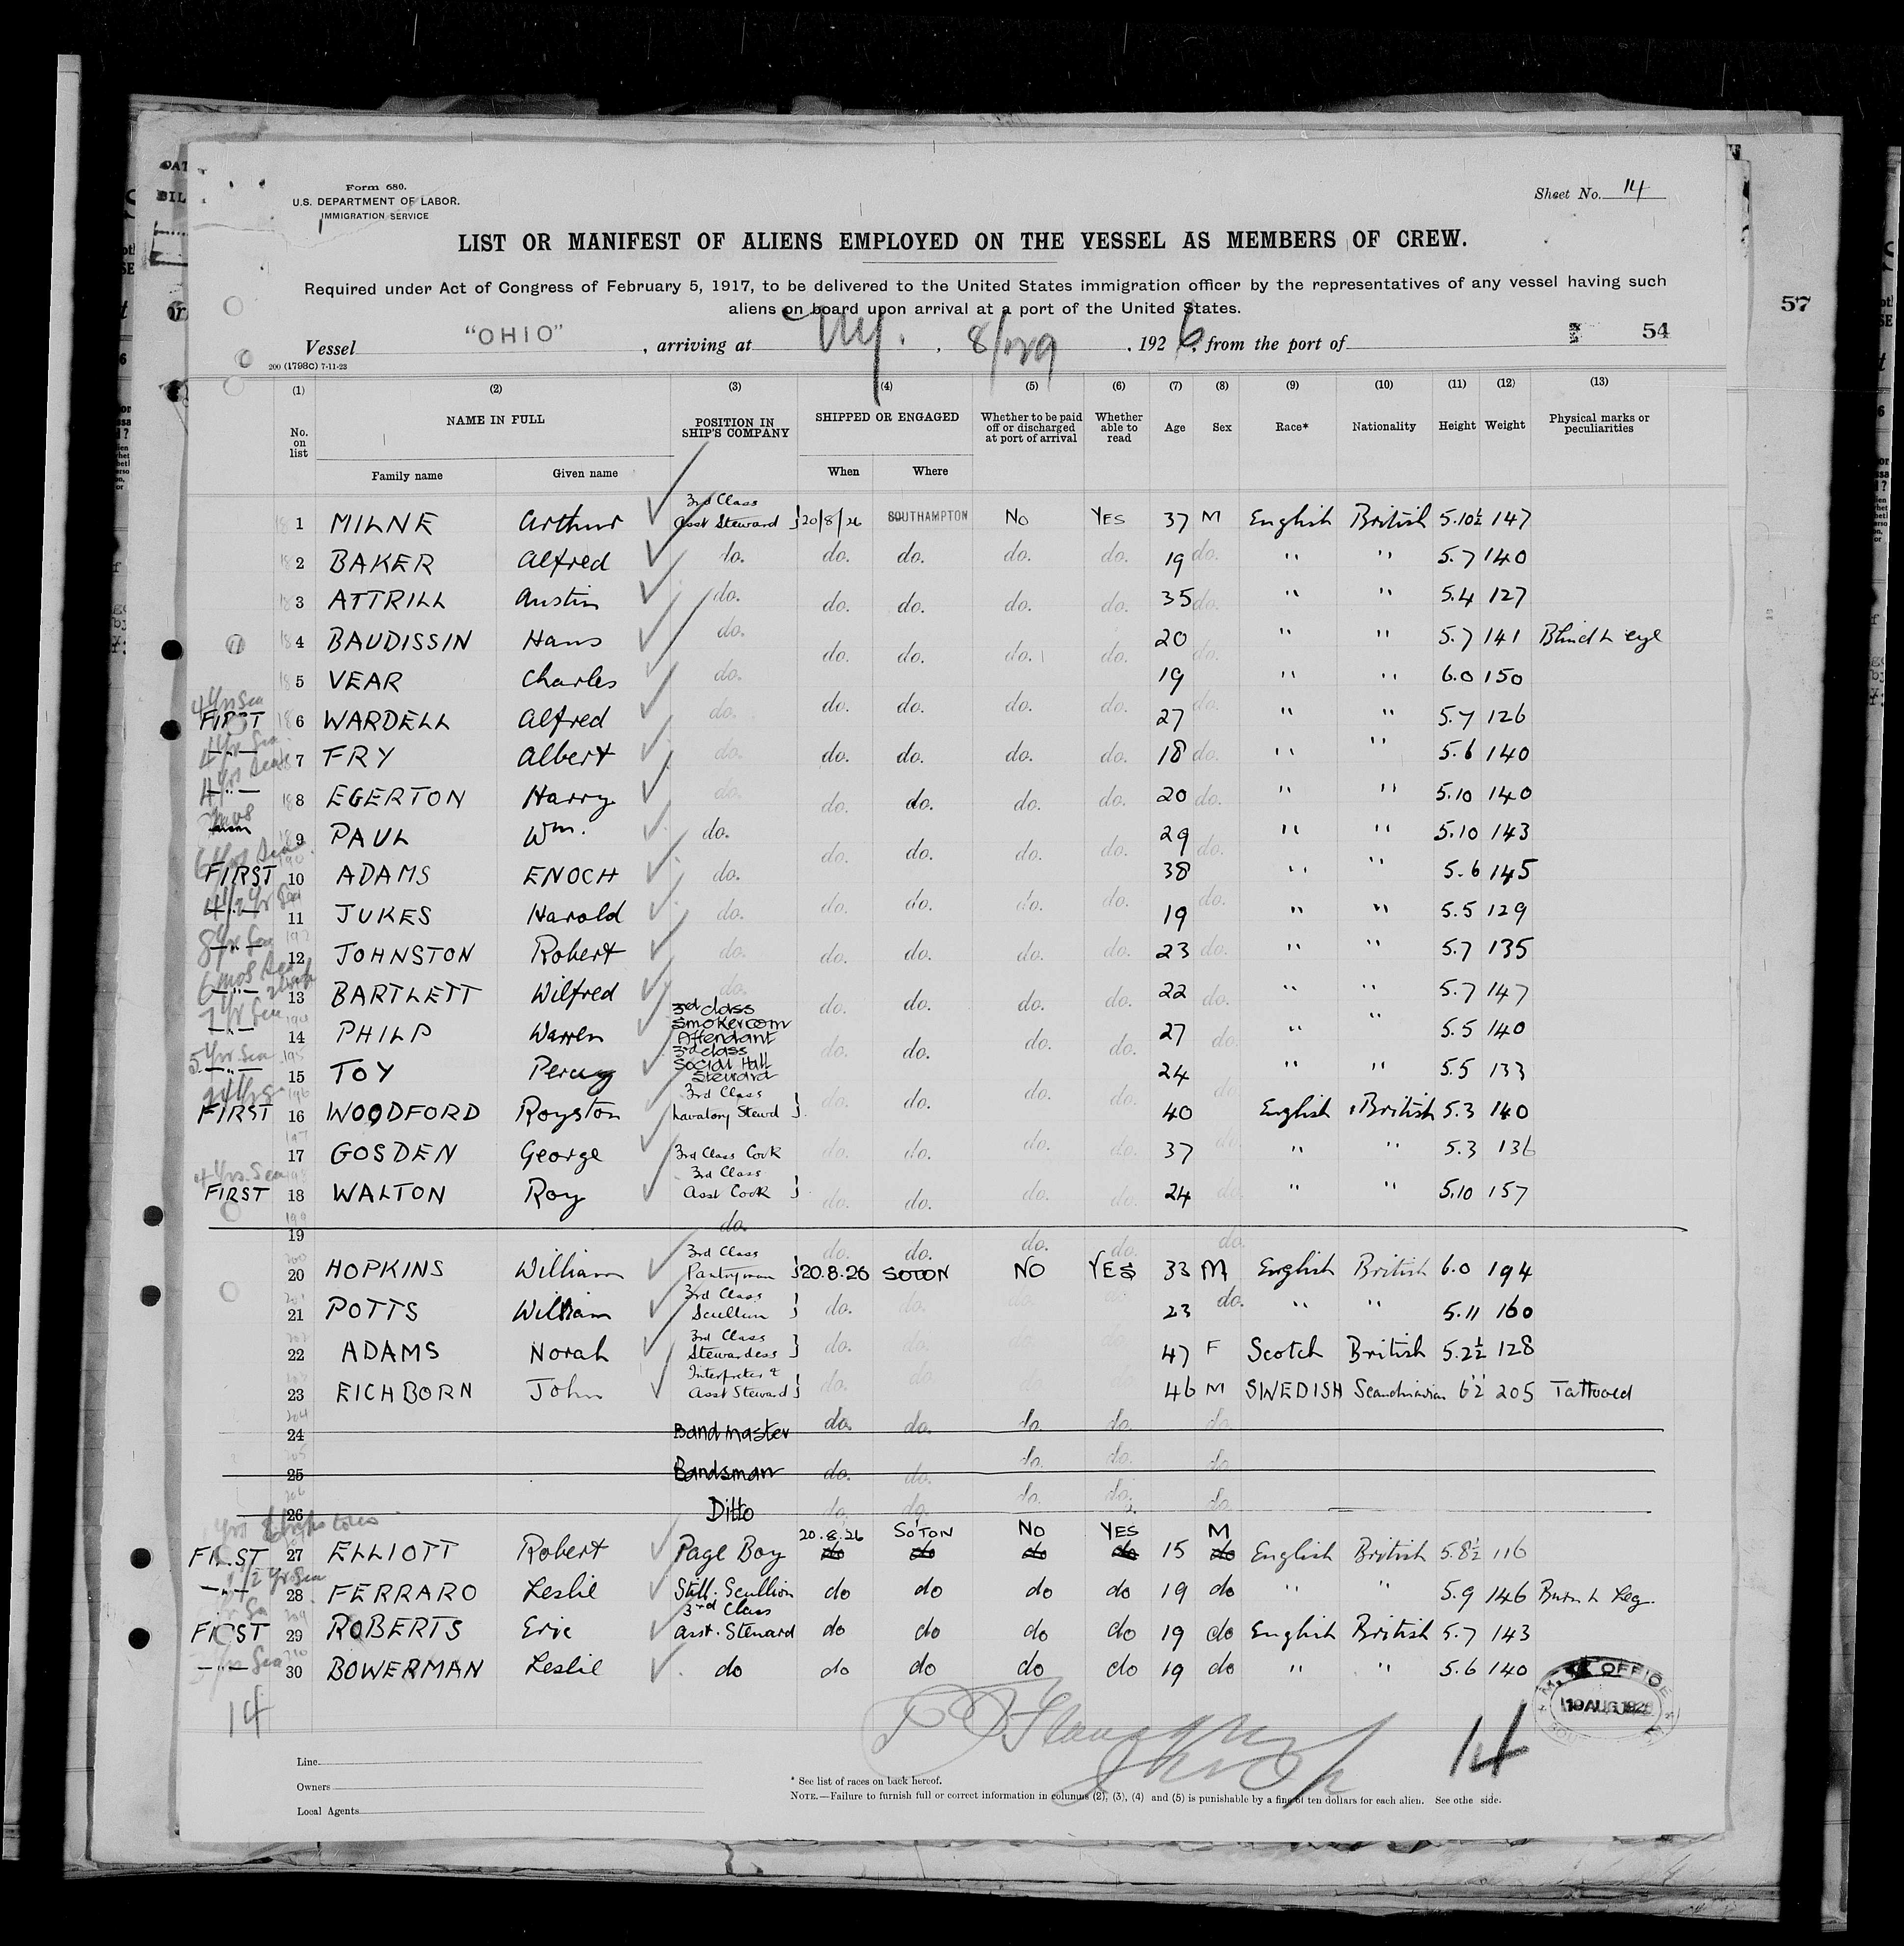 Form 680.
U.S. DEPARTMENT OF LABOR.
IMMIGRATION SERVICE
Sheet No. 14
LIST OR MANIFEST OF ALIENS EMPLOYED ON THE VESSEL AS MEMBERS OF CREW.
Required under Act of Congress of February 5, 1917, to be delivered to the United States immigration officer by the representatives of any vessel having such
aliens on board upon arrival at a port of the United States.
57
54
Vessel "OHIO", arriving at N.Y., 8/29, 1926, from the port of
200 (1798C) 7-11-23
(1) (2) (3) (4) (5) (6) (7) (8) (9) (10) (11) (12) (13)
No. on list NAME IN FULL POSITION IN SHIP'S COMPANY SHIPPED OR ENGAGED Whether to be paid off or discharged at port of arrival Whether able to read Age Sex Race* Nationality Height Weight Physical marks or peculiarities
Family name Given name When Where
1 MILNE Arthur 3rd Class Asst Steward 20/8/26 SOUTHAMPTON No YES 37 M English British 5.10½ 147
2 BAKER Alfred do. do. do. do. do. 19 do. " " 5.7 140
3 ATTRILL Austin do. do. do. do. do. 35 do. " " 5.4 127
4 BAUDISSIN Hans do. do. do. do. do. 20 do. " " 5.7 141 Blind L eye
5 VEAR Charles do. do. do. do. do. 19 do. " " 6.0 150
4 Yrs Sea FIRST 6 WARDELL Alfred do. 27 " " 5.7 126
4 Yr Sea —"— 7 FRY Albert do. do. do. do. do. 18 do. " " 5.6 140
—"— 8 EGERTON Harry do. do. do. do. do. 20 do. " " 5.10 140
9 PAUL Wm. do. do. do. do. do. 29 do. " " 5.10 143
6 Yrs Sea FIRST 10 ADAMS ENOCH do. 38 " " 5.6 145
—"— 11 JUKES Harold do. do. do. do. do. 19 do. " " 5.5 129
8 Yrs Sea —"— 12 JOHNSTON Robert do. do. do. do. do. 23 do. " " 5.7 135
6 mos Sea —"— 13 BARTLETT Wilfred do. do. do. do. 22 do. " " 5.7 147
7 Yr Sea —"— 14 PHILP Warren 3rd class Smokeroom Attendant do. do. do. do. 27 do. " " 5.5 140
5 Yrs Sea —"— 15 TOY Percy 3rd class Social Hall Steward 24 " " 5.5 133
FIRST 16 WOODFORD Royston 3rd Class Lavatory Stewd do. do. do. 40 do. English British 5.3 140
17 GOSDEN George 3rd Class Cook do. do. do. do. 37 do. " " 5.3 136
4 Yrs. Sea FIRST 18 WALTON Roy 3rd Class Asst Cook do. do. do. do. 24 do. " " 5.10 157
19 do. do. do. do. do. do.
20 HOPKINS William 3rd Class Pantryman 20.8.26 SOTON NO YES 33 M English British 6.0 194
21 POTTS William 3rd Class Scullion do. do. do. do. 23 do. " " 5.11 160
22 ADAMS Norah 3rd Class Stewardess do. do. 47 F Scotch British 5.2½ 128
23 EICHBORN John Interpreter & Asst Steward do. do. 46 M SWEDISH Scandinavian 6'2" 205 Tattooed
24 Bandmaster do. do. do. do. do.
25 Bandsman do. do. do. do. do.
26 Ditto do. do. do. do. do.
20.8.26 SO'TON No YES M
FIRST 27 ELLIOTT Robert Page Boy do do do do 15 do English British 5.8½ 116
—"— 28 FERRARO Leslie Still. Scullion do do do do 19 do " " 5.9 146 Burn L Leg.
FIRST 29 ROBERTS Eric 3rd Class asst. Steward do do do do 19 do English British 5.7 143
—"— 30 BOWERMAN Leslie do do do do do 19 do " " 5.6 140
14
14
OFFICE
19 AUG 1926
Line
Owners
Local Agents
* See list of races on back hereof.
NOTE.—Failure to furnish full or correct information in columns (2), (3), (4) and (5) is punishable by a fine of ten dollars for each alien. See othe side.